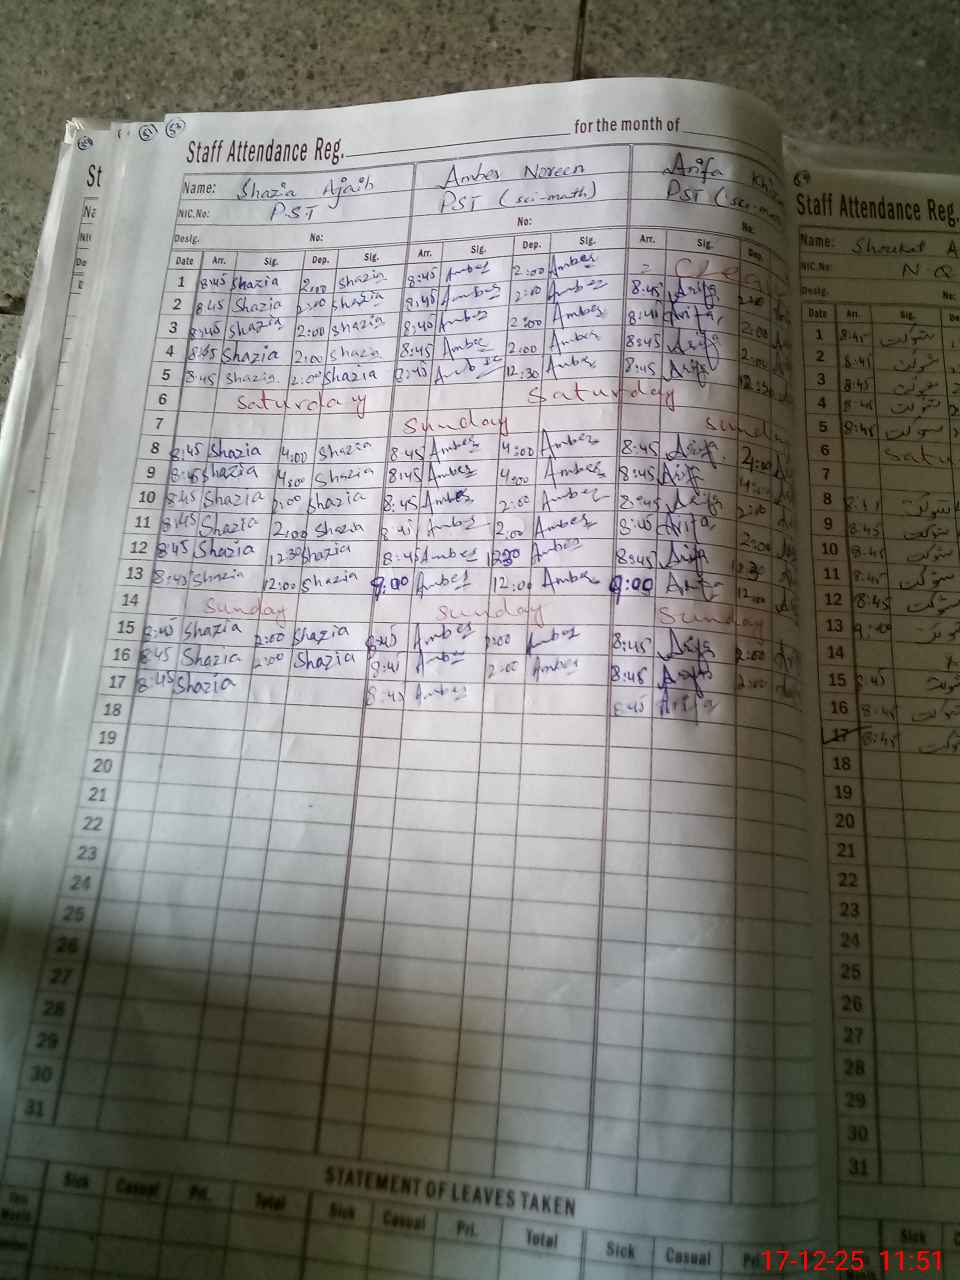 Staff Attendance Reg. for the month of
Name: Shazia Ajaib Amber Noreen Arifa
NIC.No: PST PST (sci-math) PST (sci-math
Desig. No: No: No:
Date Arr. Sig. Dep. Sig. Arr. Sig. Dep. Sig. Arr. Sig. Dep.
1 8:45 Shazia 2:00 Shazia 8:45 Amber 2:00 Amber
2 8:45 Shazia 2:00 Shazia 8:45 Amber 2:00 Amber 8:45 Arifa 2:00
3 8:45 Shazia 2:00 Shazia 8:45 Amber 2:00 Amber 8:45 Arifa 2:00
4 8:45 Shazia 2:00 Shazia 8:45 Amber 2:00 Amber 8:45 Arifa 2:00
5 8:45 Shazia 2:00 Shazia 8:45 Amber 12:30 Amber 8:45 Arifa 12:30
6 Saturday Saturday
7 Sunday Sunday
8 8:45 Shazia 4:00 Shazia 8:45 Amber 4:00 Amber 8:45 Arifa 4:00
9 8:45 Shazia 4:00 Shazia 8:45 Amber 4:00 Amber 8:45 Arifa 4:00
10 8:45 Shazia 2:00 Shazia 8:45 Amber 2:00 Amber 8:45 Arifa 2:00
11 8:45 Shazia 2:00 Shazia 8:45 Amber 2:00 Amber 8:45 Arifa 2:00
12 8:45 Shazia 12:30 Shazia 8:45 Amber 12:30 Amber 8:45 Arifa 12:30
13 8:45 Shazia 12:00 Shazia 9:00 Amber 12:00 Amber 9:00 Arifa 12:00
14 Sunday Sunday Sunday
15 8:45 Shazia 2:00 Shazia 8:45 Amber 2:00 Amber 8:45 Arifa 2:00
16 8:45 Shazia 2:00 Shazia 8:45 Amber 2:00 Amber 8:45 Arifa 2:00
17 8:45 Shazia 8:45 Amber 8:45 Arifa
18
19
20
21
22
23
24
25
26
27
28
29
30
31
STATEMENT OF LEAVES TAKEN
Sick Casual Pri. Total Sick Casual Pri. Total Sick Casual Pri
This
Month
Staff Attendance Reg.
Name: Shoukat
NIC.No: N Q
Desig. No:
Date Arr. Sig.
1 8:45 شوکت
2 8:45 شوکت
3 8:45 شوکت
4 8:45 شوکت
5 8:45 شوکت
6 Satu
7
8 شوکت
9 8:45 شوکت
10 8:45 شوکت
11 8:45 شوکت
12 8:45 شوکت
13 9:00 شوکت
14
15 8:45 شوکت
16 8:45 شوکت
17 8:45 شوکت
18
19
20
21
22
23
24
25
26
27
28
29
30
31
Sick
17-12-25 11:51